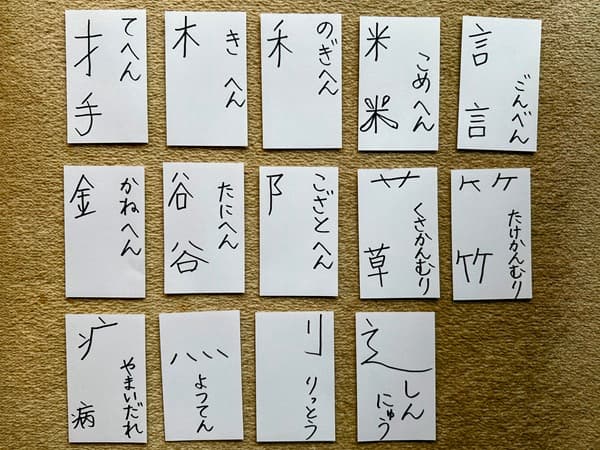 てへん
扌
手
きへん
木
のぎへん
禾
こめへん
米
米
ごんべん
言
言
かねへん
金
たにへん
谷
谷
こざとへん
阝
くさかんむり
艹
草
たけかんむり
𥫗
竹
やまいだれ
疒
病
よつてん
灬
りっとう
刂
しんにゅう
辶